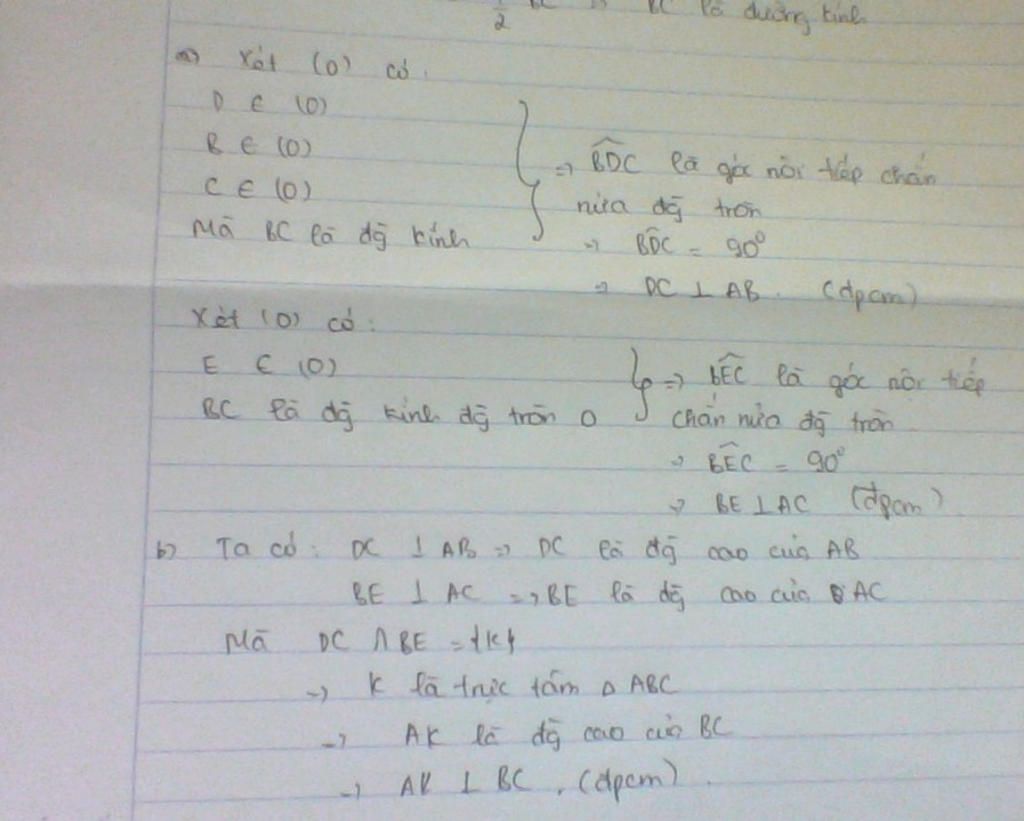 1/2 BC => BC là đường kính
a) Xét (O) có:
D ∈ (O)
B ∈ (O)
C ∈ (O)
Mà BC là đg kính
=> BDC là góc nội tiếp chắn
nửa đg tròn
=> BDC = 90°
=> DC ⊥ AB. (đpcm)
Xét (O) có:
E ∈ (O)
BC là đg kính đg tròn O
=> BEC là góc nội tiếp
chắn nửa đg tròn
=> BEC = 90°
=> BE ⊥ AC (đpcm)
b) Ta có: DC ⊥ AB => DC là đg cao của AB
BE ⊥ AC => BE là đg cao của AC
Mà DC ∩ BE = {K}
=> K là trực tâm Δ ABC
=> AK là đg cao của BC
=> AK ⊥ BC. (đpcm).